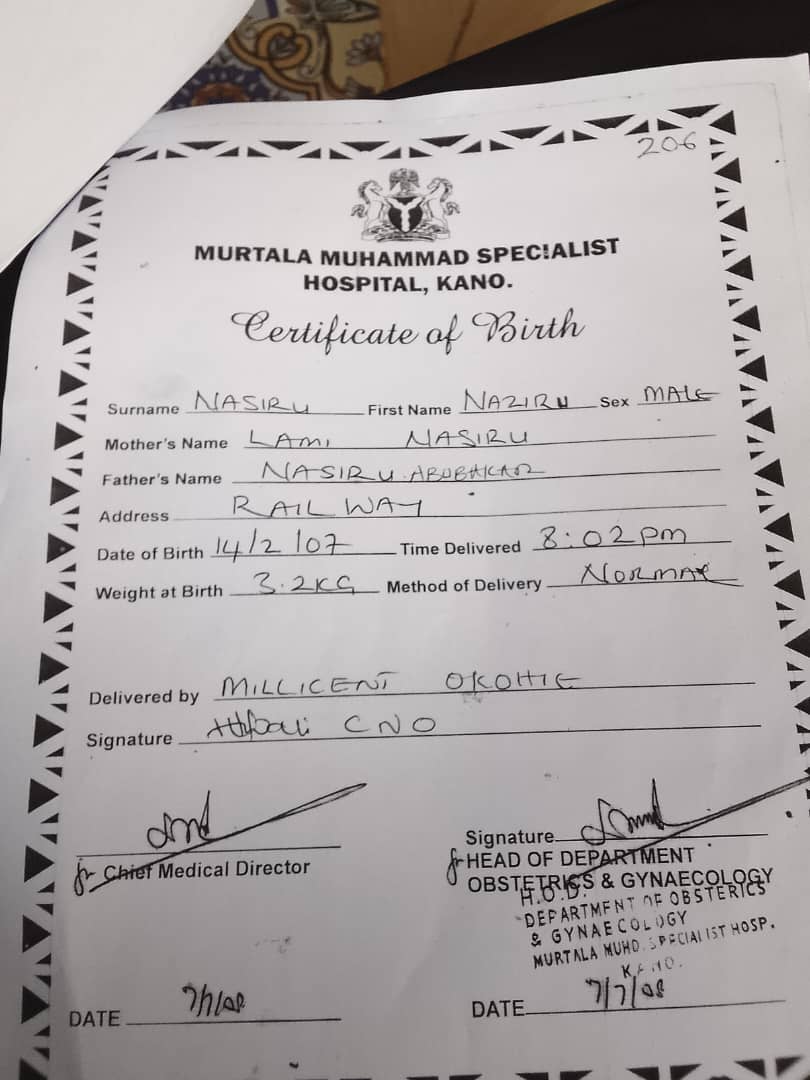 206
MURTALA MUHAMMAD SPECIALIST
HOSPITAL, KANO.
Certificate of Birth
Surname NASIRU First Name NAZIRU Sex MALE
Mother's Name LAMI NASIRU
Father's Name NASIRU ABUBAKAR
Address RAIL WAY
Date of Birth 14/2/07 Time Delivered 8:02pm
Weight at Birth 3.2KG Method of Delivery NORMAL
Delivered by MILLICENT OKOHIE
Signature CNO
Signature
fr Chief Medical Director
fr HEAD OF DEPARTMENT
OBSTETRICS & GYNAECOLOGY
H.O.D.
DEPARTMENT OF OBSTERICS
& GYNAECOLOGY
MURTALA MUHD. SPECIALIST HOSP.
KANO.
DATE 7/7/08
DATE 7/7/08